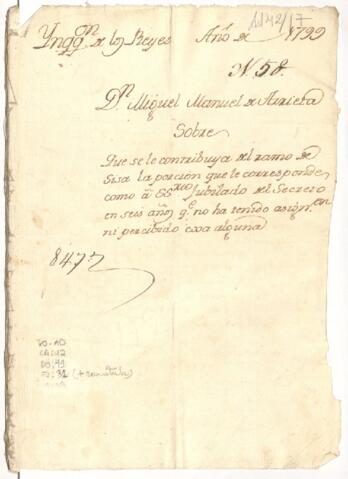 1142/17
Ynqqon de los Reyes Año de 1799
N. 58.
Dn Miguel Manuel de Arrieta
Sobre
Que se le contribuya del ramo de
Sisa la porción que le corresponde
como a SSrio Jubilado del Secreto
en seis años qe no ha tenido asignon
ni percibido cosa alguna
847:7
TO-AD
CA:142
DO:49